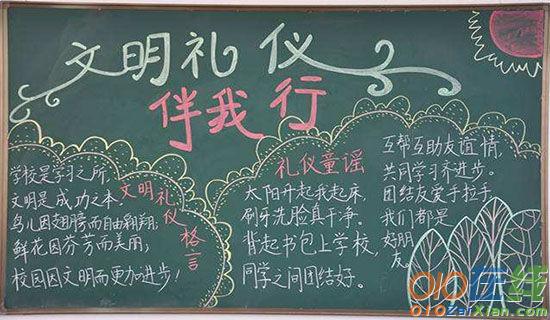 文明礼仪
伴我行
学校是学习之所，
文明是成功之本。
鸟儿因翅膀而自由翱翔，
鲜花因芬芳而美丽；
校园因文明而更加进步！
文明礼仪格言
礼仪童谣
太阳升起我起床，
刷牙洗脸真干净。
背起书包上学校，
同学之间团结好。
互帮互助友谊情，
共同学习齐进步。
团结友爱手拉手，
我们都是
好朋友。
010在线
010ZaiXian.com